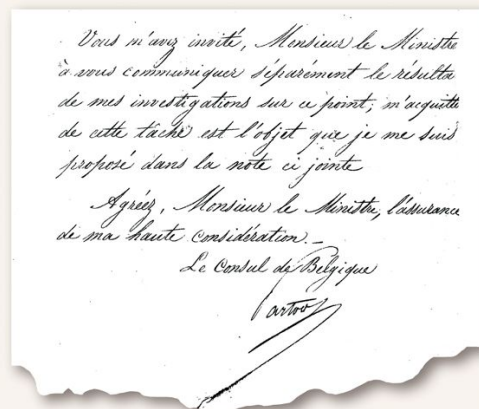 Vous m'avez invité, Monsieur le Ministre
à vous communiquer séparément le résulta
de mes investigations sur ce point; m'acquitte
de cette tâche est l'objet que je me suis
proposé dans la note ci jointe
Agréez, Monsieur le Ministre, l'assurance
de ma haute considération._
Le Consul de Belgique